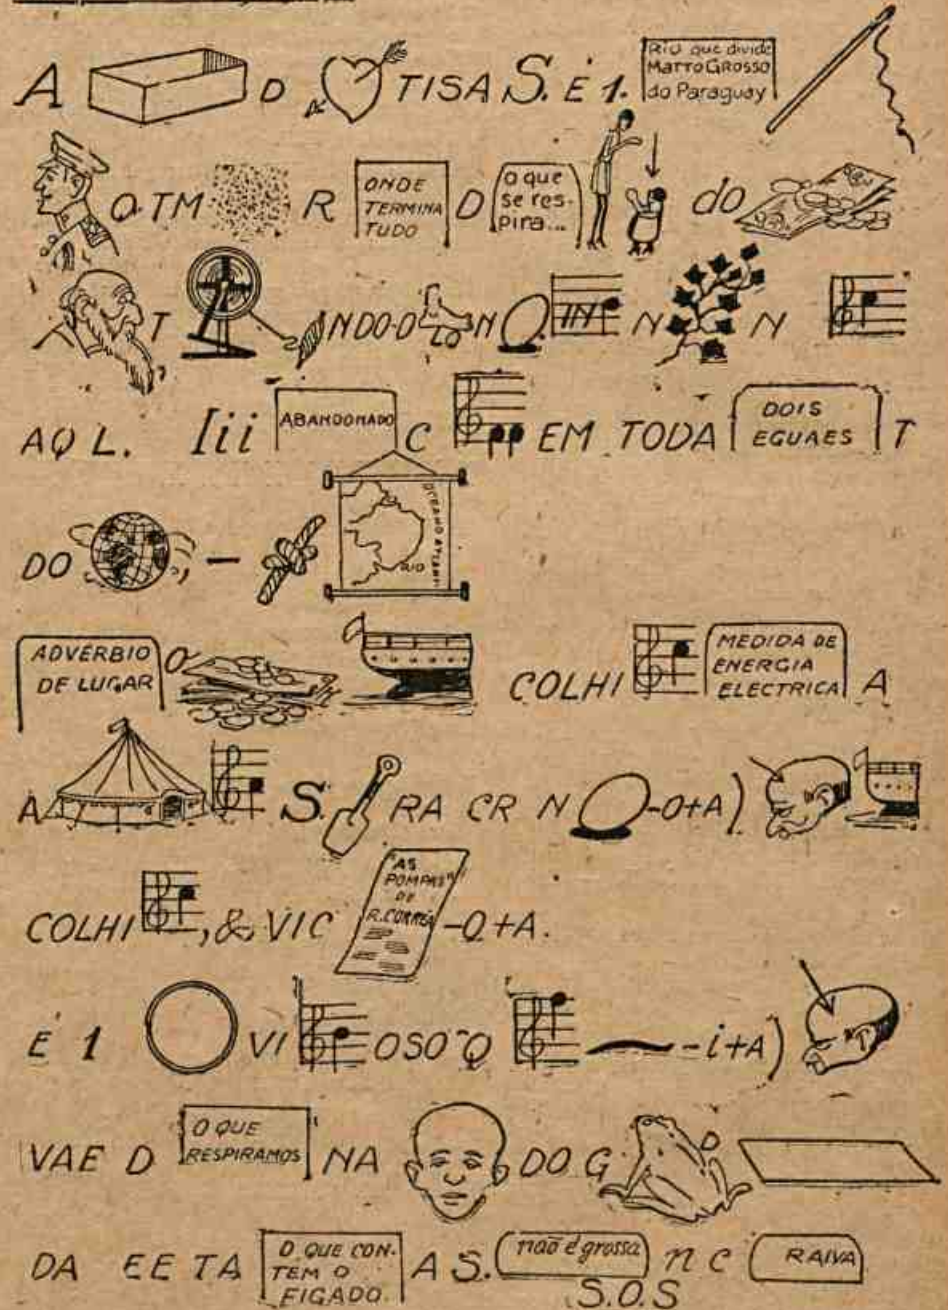 A D TISA S. É 1. Rio que divide MATTO GROSSO do Paraguay
O TM R ONDE TERMINA TUDO D O que se res-pira... do
T NDO-D N IN N N
AQ L. Iii ABANDONADO C EM TODA DOIS EGUAES T
DO , - OCEANO ATLANT. RIO
ADVERBIO DE LUGAR O COLHI MEDIDA DE ENERGIA ELECTRICA A
A S. RA CR N -O+A)
COLHI , & VIC "AS POMPAS" DE R. CORRÊA -Q+A.
É 1 VI OSO ~Q -i+A)
VAE D O QUE RESPIRAMOS NA DO G D
DA EE TA O QUE CON-TEM O FIGADO. A S. não é grossa n c RAIVA
S.O.S